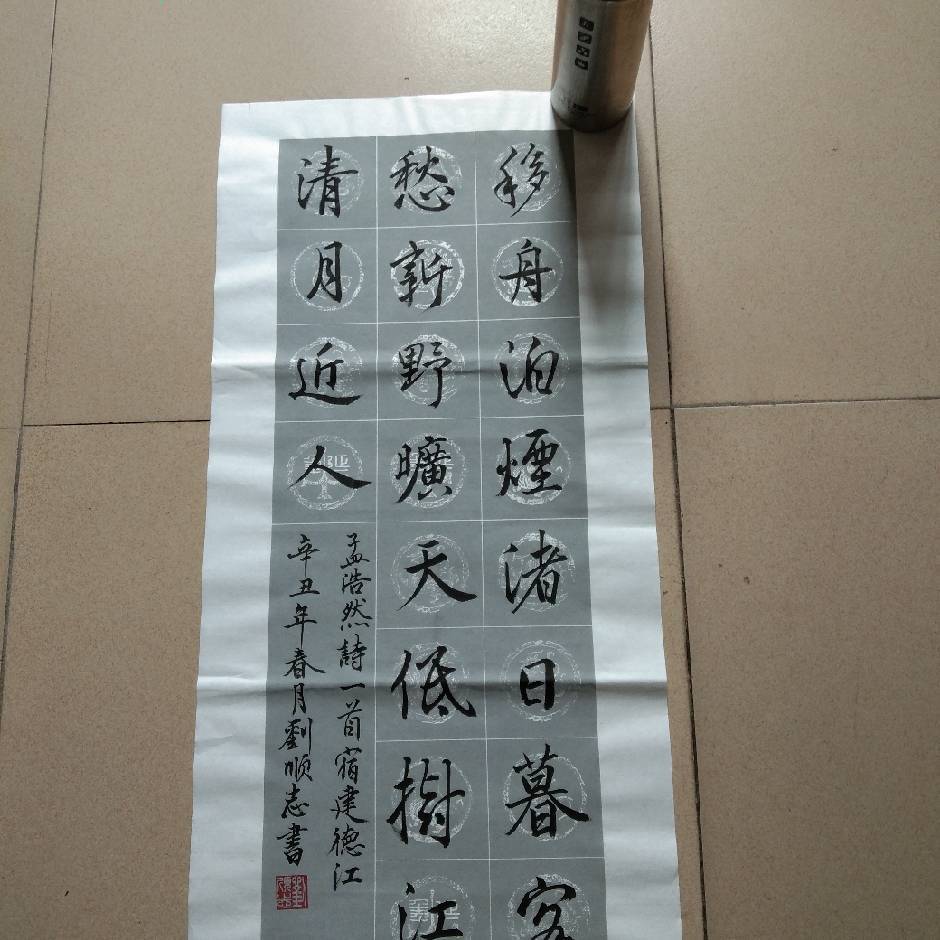 移舟泊煙渚日暮客
愁新野曠天低樹江
清月近人
孟浩然詩一首宿建德江
辛丑年春月劉順志書